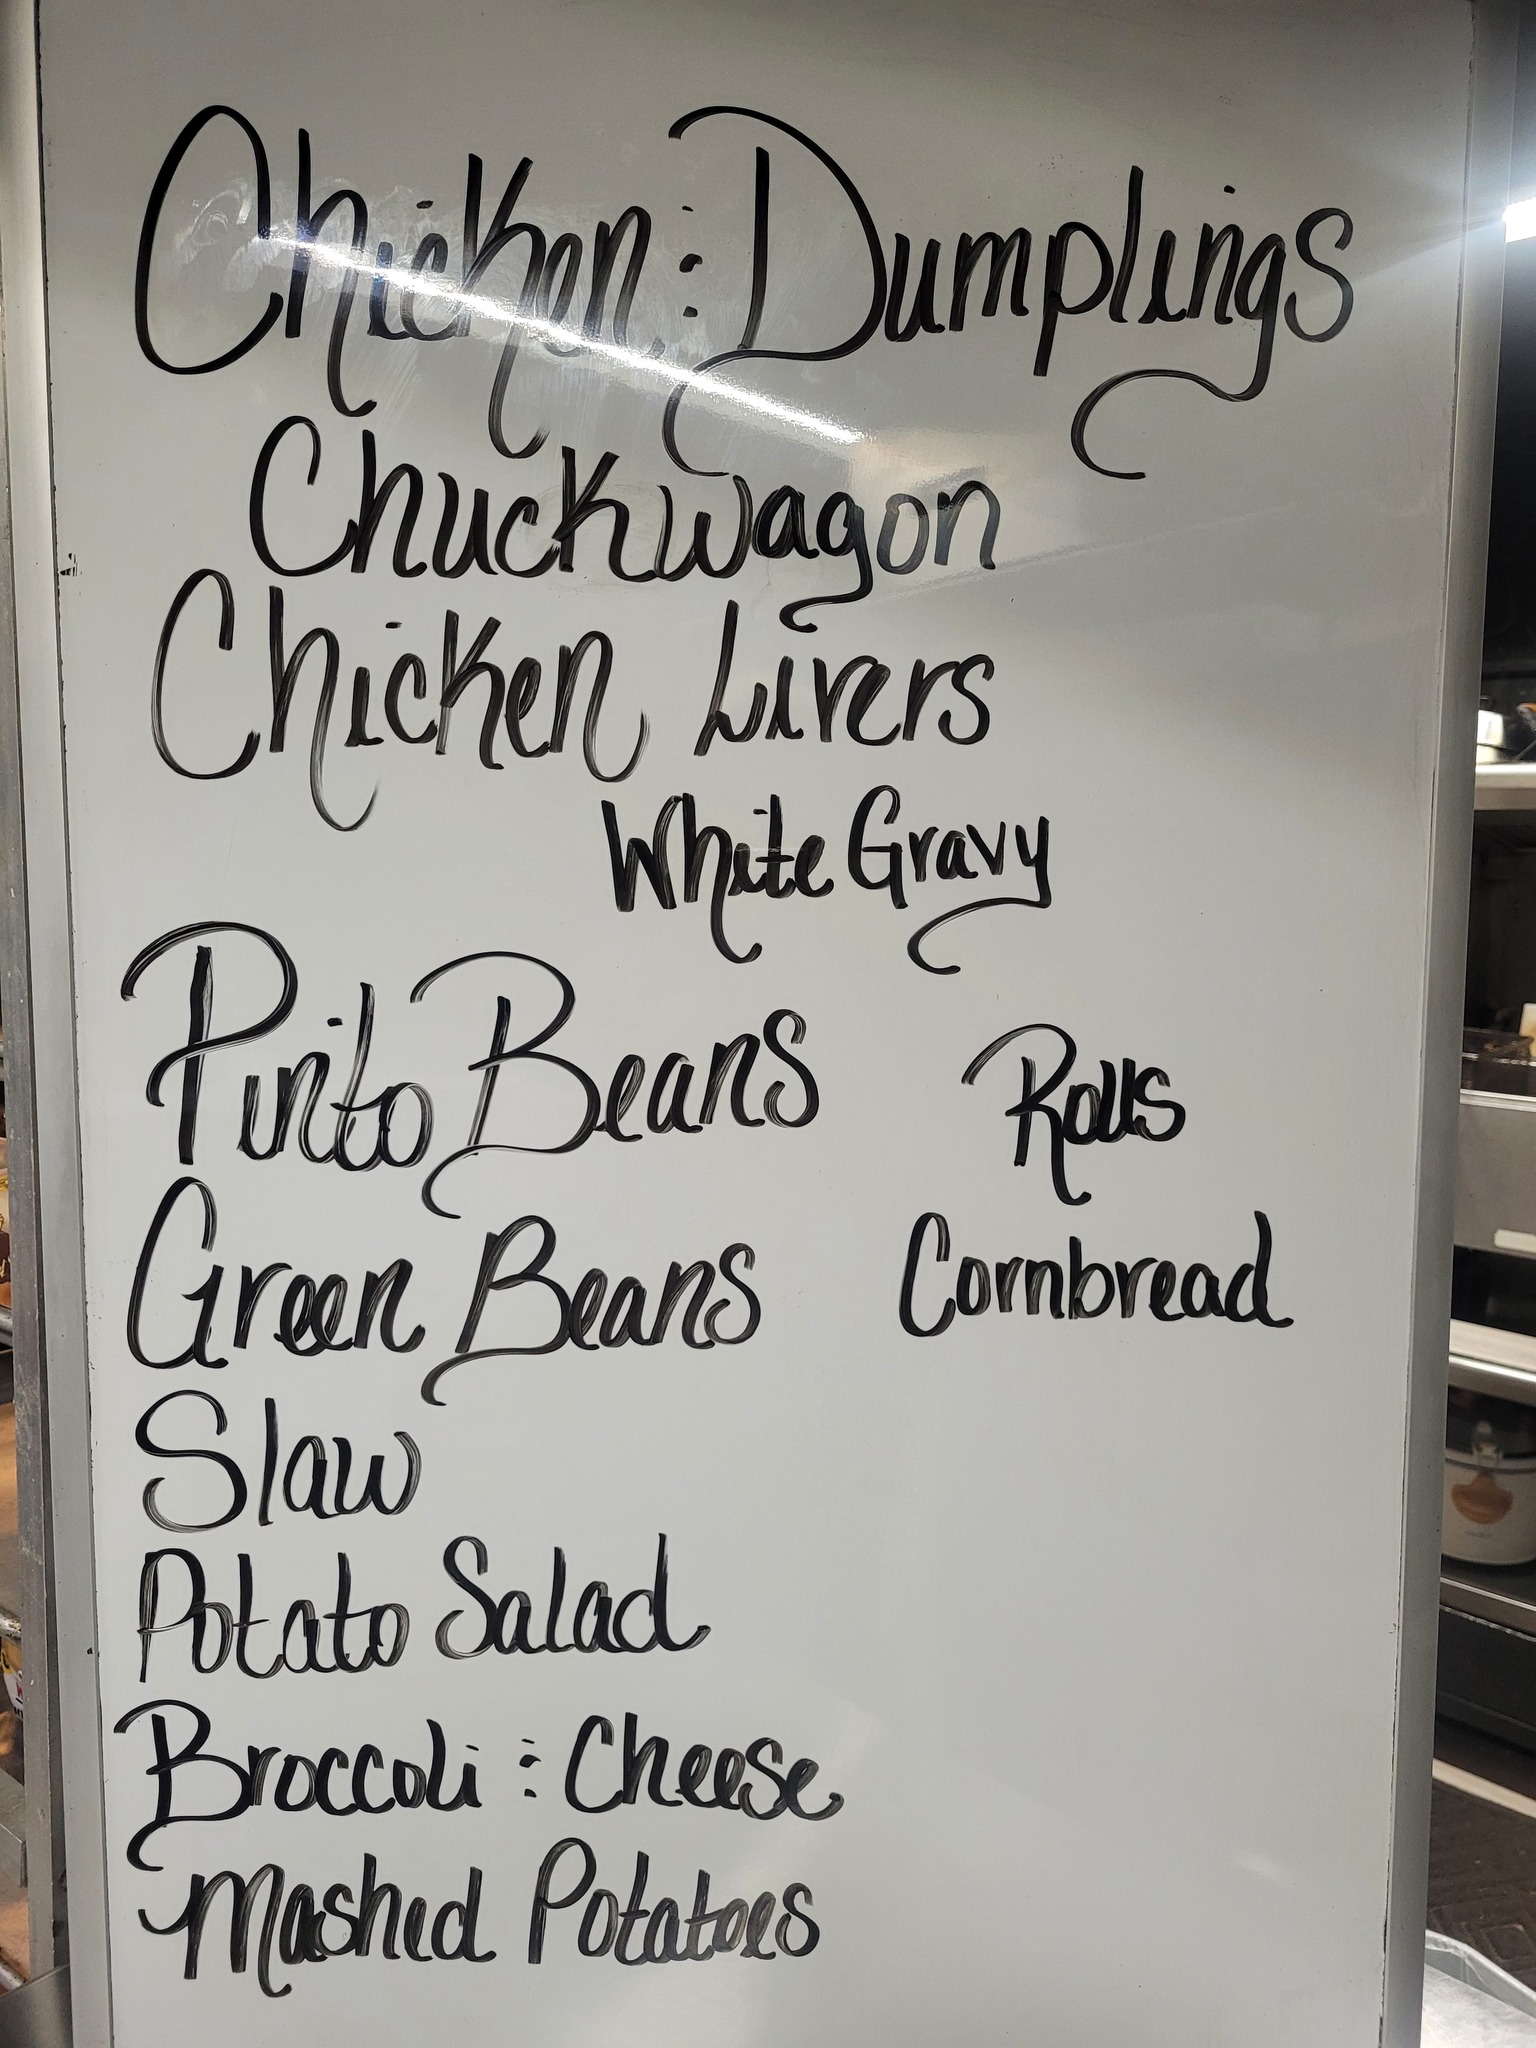 Chicken : Dumplings
Chuckwagon
Chicken Livers
White Gravy
Pinto Beans
Rolls
Green Beans
Cornbread
Slaw
Potato Salad
Broccoli : Cheese
Mashed Potatoes